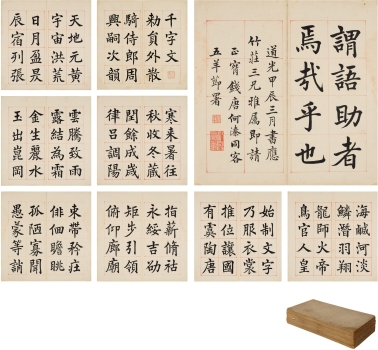 千字文
勅員外散
騎侍郎周
興嗣次韻
天地元黃
宇宙洪荒
日月盈昃
辰宿列張
寒来暑往
秋收冬藏
閏餘成歲
律呂調陽
雲騰致雨
露結為霜
金生麗水
玉出崑岡
海鹹河淡
鱗潛羽翔
龍師火帝
鳥官人皇
始制文字
乃服衣裳
推位讓國
有虞陶唐
指薪脩祜
永綏吉劭
矩步引領
俯仰廊廟
束帶矜莊
徘徊瞻眺
孤陋寡聞
愚蒙等誚
謂語助者
焉哉乎也
道光甲辰三月書應
竹莊三兄雅屬即請
正 錢唐何溱同客
五羊節署